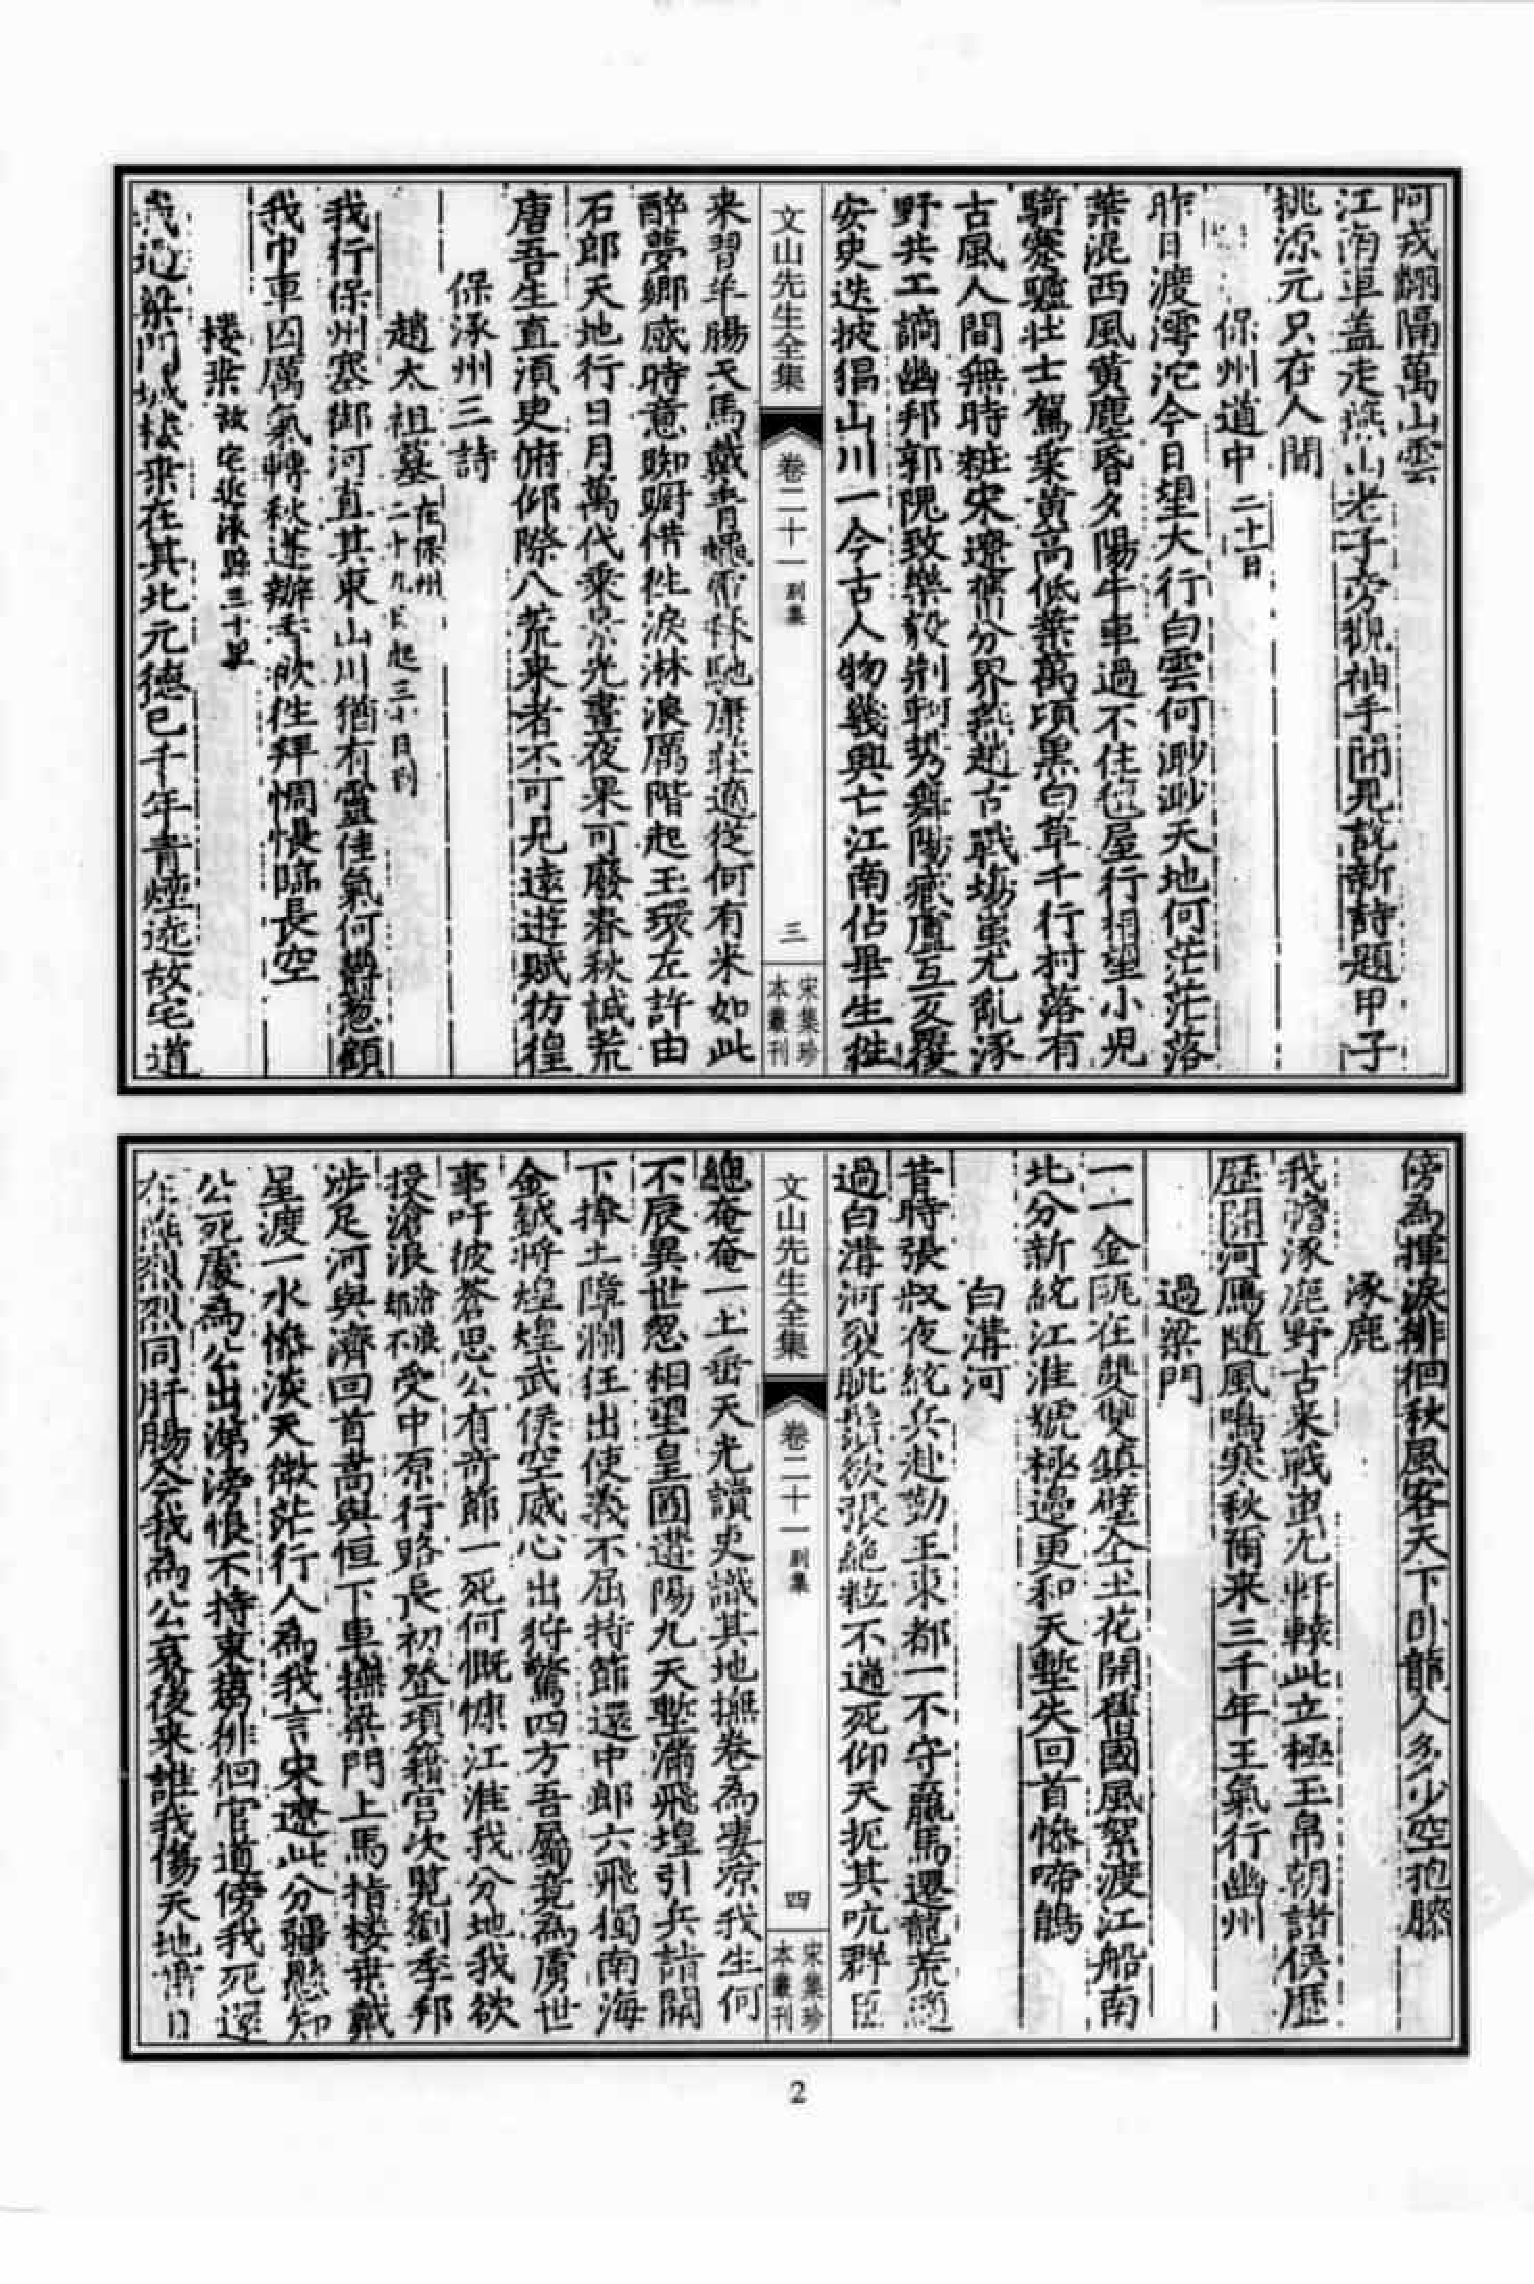 阿戎翻隔萬山雲
江南車盖走燕山老子旁觀袖手閒見說新詩題甲子
桃源元只在人間
保州道中二十一日
昨日渡滹沱今日望大行白雲何渺渺天地何茫茫落
葉混西風黃塵昏夕陽牛車過不住氊屋行相望小兒
騎蹇驢壯士駕乗黄高低葉萬頃黒白草千行村落有
古風人間無時粧宋遼舊分界燕趙古戰塲蚩尤亂涿
野共工謫幽邦郭隗致樂毅荆軻携舞陽臧盧互反覆
安史迭披猖山川一今古人物幾興亡江南佔畢生往
文山先生全集
卷二十一
別集
三
宋集珍
本叢刊
来習羊腸天馬戴青蠅霈秣馳康莊適從何有来如此
醉夢鄉感時意踟蹰惜徃淚淋浪厲階起玉環左許由
石郎天地行日月萬代乘景光晝夜果可廢春秋誠荒
唐吾生直須史俯仰際八荒来者不可見遠遊賦彷徨
保涿州三詩
趙太祖墓在保州二十九日起三十日到
我行保州塞御河直其東山川猶有靈佳氣何鬱葱顧
我巾車囚厲氣轉秋蓬瓣香欲徃拜惆悵臨長空
樓桒故宅近涿縣三十里
我過梁門城樓桒在其北元德已千年青煙迹故宅道
傍為揮淚徘徊秋風客天下卧龍人多少空抱膝
涿鹿
我瞻涿鹿野古来戰蚩尤軒轅此立極玉帛朝諸侯歷
歷關河鴈隨風鳴寒秋爾来三千年王氣行幽州
過梁門
一一金甌在雙雙鎮壁仝土花開舊國風絮渡江船南
北分新統江淮號極邉更和天塹失回首惨啼鵑
白溝河
昔時張叔夜統兵赴勤王東都一不守羸馬遷龍荒適
過白溝河裂眦鬚欲張絶粒不遄死仰天扼其吭群臣
文山先生全集
卷二十一
別集
四
宋集珍
本叢刊
緫奄奄一土垂天光讀史識其地撫卷為凄凉我生何
不辰異世忽相望皇國遘陽九天塹滿飛煌引兵詣闕
下捧土障瀾狂出使義不屈持節還中郎六飛獨南海
金鉞将煌煌武侯空威心出狩驚四方吾屬竟為虜世
事吁彼蒼思公有奇節一死何慨慷江淮我分地我欲
投滄浪滄浪姻不受中原行路長初登項籍宫次覧劉季邦
涉足河與濟回首嵩與恒下車撫梁門上馬指楼桒戴
星渡一水惨淡天微茫行人為我言宋遼此分疆懸知
公死處為公出涕滂恨不持束蒭徘徊官道傍我死還
在燕烈烈同肝腸今我為公哀後来誰我傷天地
2